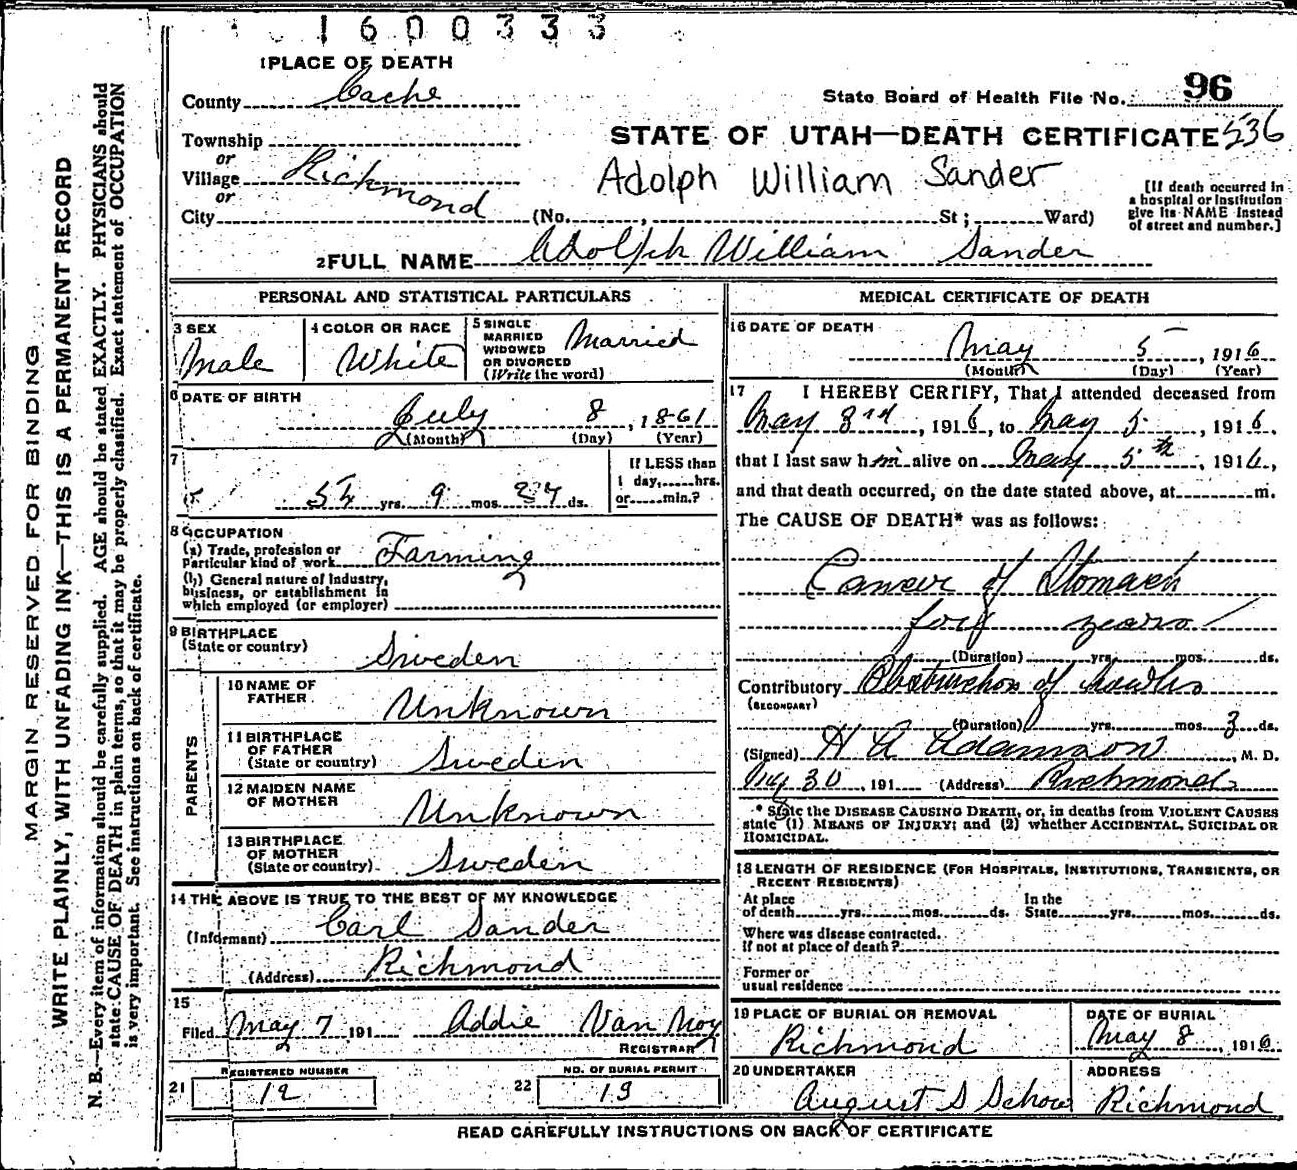 1600333
1 PLACE OF DEATH
County Cache
State Board of Health File No. 96
Township
or
STATE OF UTAH—DEATH CERTIFICATE 536
Village Richmond
or
Adolph William Sander
[If death occurred in
a hospital or institution
give its NAME instead
of street and number.]
City (No. , St; Ward)
2 FULL NAME Adolph William Sander
PERSONAL AND STATISTICAL PARTICULARS
3 SEX
Male
4 COLOR OR RACE
White
5 SINGLE
MARRIED
WIDOWED
OR DIVORCED
(Write the word)
Married
6 DATE OF BIRTH
July 8, 1861
(Month) (Day) (Year)
7
54 yrs. 9 mos. 27 ds.
If LESS than
1 day, hrs.
or min.?
8 OCCUPATION
(a) Trade, profession or
particular kind of work Farming
(b) General nature of industry,
business, or establishment in
which employed (or employer)
9 BIRTHPLACE
(State or country)
Sweden
PARENTS
10 NAME OF
FATHER
Unknown
11 BIRTHPLACE
OF FATHER
(State or country)
Sweden
12 MAIDEN NAME
OF MOTHER
Unknown
13 BIRTHPLACE
OF MOTHER
(State or country)
Sweden
14 THE ABOVE IS TRUE TO THE BEST OF MY KNOWLEDGE
(Informant) Carl Sander
(Address) Richmond
15
Filed May 7, 191 Addie Van Noy
REGISTRAR
REGISTERED NUMBER
21 12
NO. OF BURIAL PERMIT
22 13
MEDICAL CERTIFICATE OF DEATH
16 DATE OF DEATH
May 5, 1916
(Month) (Day) (Year)
17 I HEREBY CERTIFY, That I attended deceased from
May 3rd, 1916, to May 5, 1916,
that I last saw him alive on May 5th, 1916,
and that death occurred, on the date stated above, at m.
The CAUSE OF DEATH* was as follows:
Cancer of Stomach
years
(Duration) yrs. mos. ds.
Contributory Obstruction of bowels
(SECONDARY)
(Duration) yrs. mos. 3 ds.
(Signed) H A Adamson, M. D.
30, 191 (Address) Richmond
* State the DISEASE CAUSING DEATH, or, in deaths from VIOLENT CAUSES
state (1) MEANS OF INJURY; and (2) whether ACCIDENTAL, SUICIDAL OR
HOMICIDAL.
18 LENGTH OF RESIDENCE (FOR HOSPITALS, INSTITUTIONS, TRANSIENTS, OR
RECENT RESIDENTS)
At place
of death yrs. mos. ds.
In the
State yrs. mos. ds.
Where was disease contracted.
If not at place of death?
Former or
usual residence
19 PLACE OF BURIAL OR REMOVAL
Richmond
DATE OF BURIAL
May 8, 1916
20 UNDERTAKER
August S Schow
ADDRESS
Richmond
READ CAREFULLY INSTRUCTIONS ON BACK OF CERTIFICATE
MARGIN RESERVED FOR BINDING
WRITE PLAINLY, WITH UNFADING INK—THIS IS A PERMANENT RECORD
N. B.—Every item of information should be carefully supplied. AGE should be stated EXACTLY. PHYSICIANS should
state CAUSE OF DEATH in plain terms, so that it may be properly classified. Exact statement of OCCUPATION
is very important. See instructions on back of certificate.